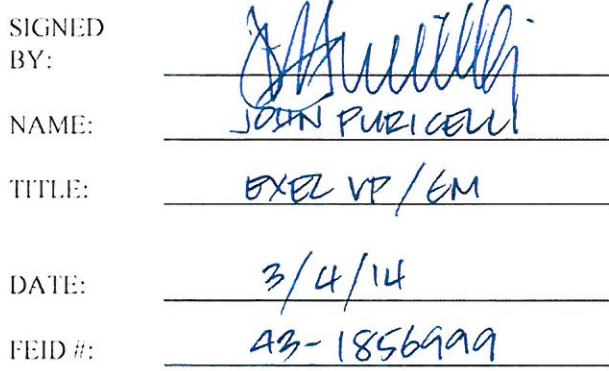 SIGNED
BY:
NAME: JOHN PURICELLI
TITLE: EXEC VP / GM
DATE: 3/4/14
FEID #: 43-1856999